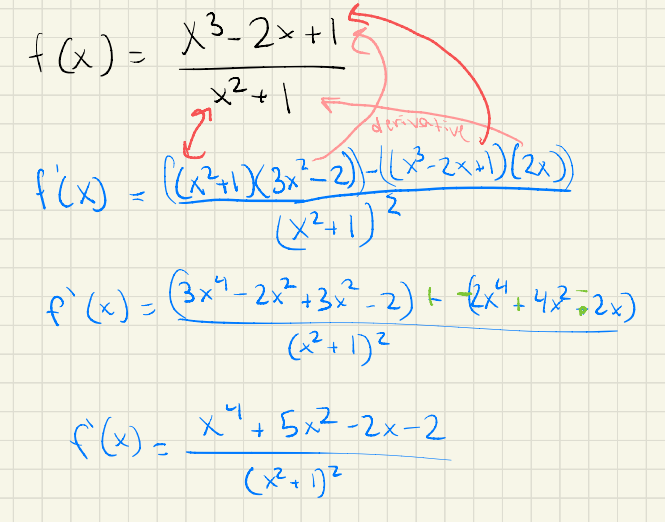 f(x) = (x³ - 2x + 1)/(x² + 1)
derivative
f'(x) = ((x²+1)(3x²-2)) - ((x³-2x+1)(2x))/(x²+1)²
f'(x) = (3x⁴ - 2x² + 3x² - 2) + (-2x⁴ + 4x² - 2x)/(x²+1)²
f'(x) = x⁴ + 5x² - 2x - 2/(x²+1)²